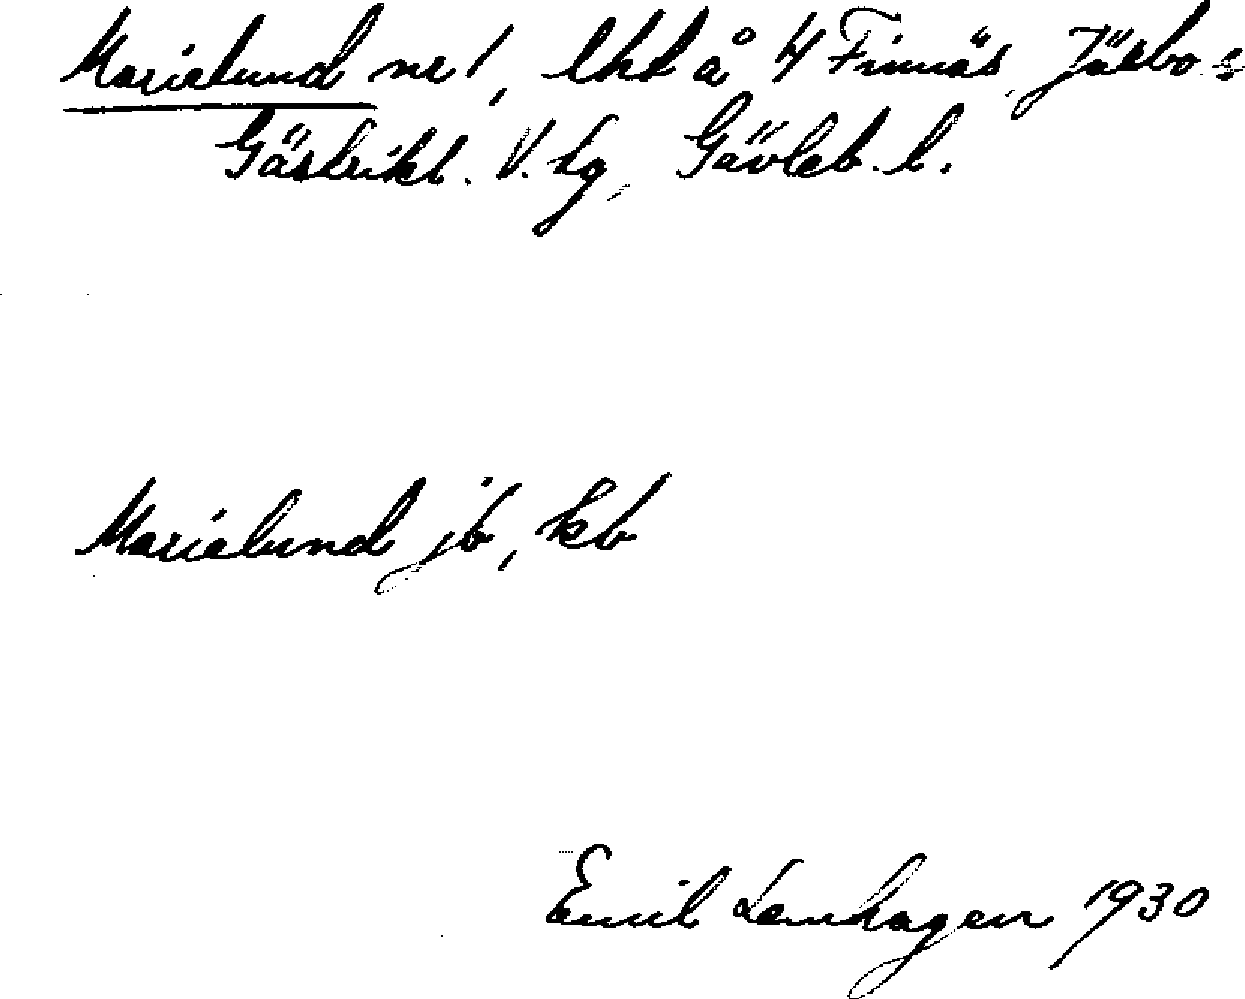 Marielund nr 1, lhd å 4 Finnäs, Järbo s
Gästrikl. V. tg, Gävleb. l.
Marielund jb, kb
Emil Lenhagen 1930